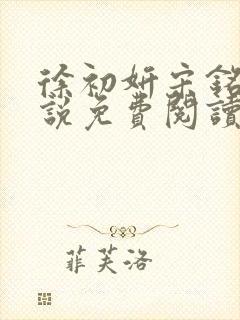 徐初妍宋銘
說免費閱讀
菲芙洛